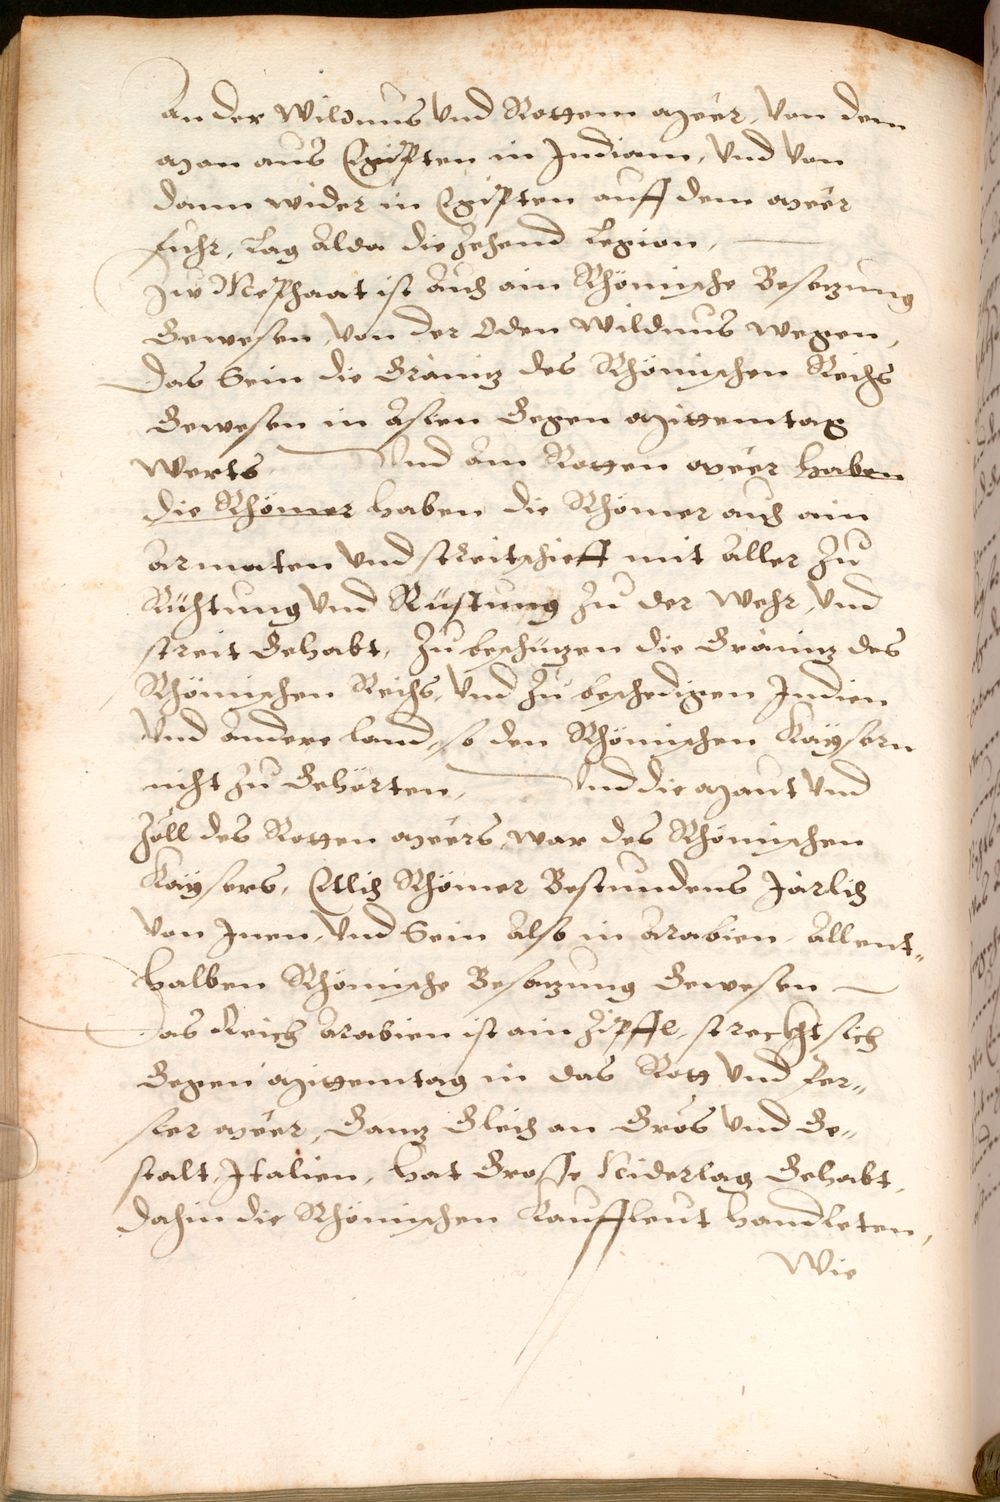 an der Wildnus vnd Rottem meer, von dem
man aus Egipten in Indiam, vnd von
dann wider in Egipten auff dem meer
fuhr, Lag alda die zehend Legion,
Zw Mephaat ist auch ain Rhömische Besatzung
Gewesen, von der Oden wildnus wegen,
Das Sein die Gränitz des Rhömischen Reichs
Gewesen in Asien Gegen mittemtag
werts Vnd am Rotten meer haben
die Rhömer haben die Rhömer auch ain
armaten vnd streitschieff mit aller Zu
Richtung vnd Rüstung zu der Wehr, vnd
streit Gehabt, Zu beschützen die Gränitz des
Rhömischen Reichs, vnd zu beschedigen Indien
Vnd andere land, so den Rhömischen Kaysern
nicht zu Gehörten, Vnd die maut vnd
Zöll des Rotten meers, war des Rhömischen
Kaysers, Etlich Rhömer Bestundens Järlich
von Inen, vnd Sein also in Arabien allent„
halben Rhömische Besatzung Gewesen
Das Reich Arabien ist ain Zipffl, streckht sich
Gegen mittemtag in das Rott vnd Per„
sier meer, Gantz Gleich an Grös vnd Ge„
stalt, Italien, hat Grosse Niderlag Gehabt,
dahin die Rhömischen Kauffleut handleten,
Wie